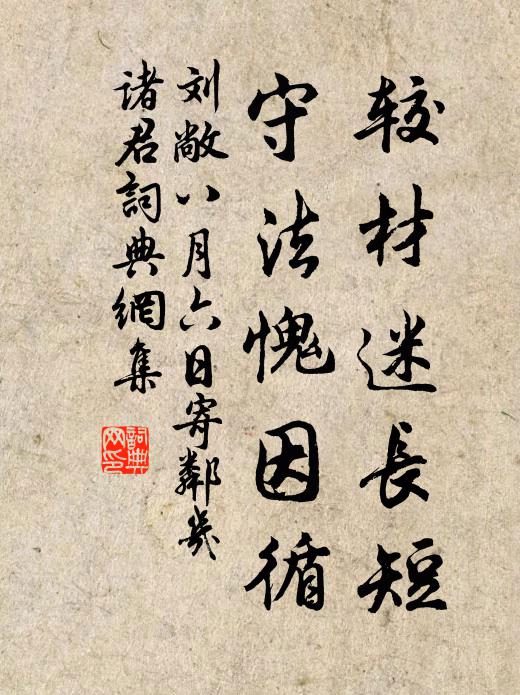 较材迷長短
守法愧因循
刘敞八月六日寄鄰幾
诸君詞典網集
詞典
网印